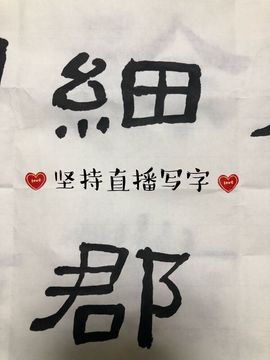 細
坚持直播写字
郡